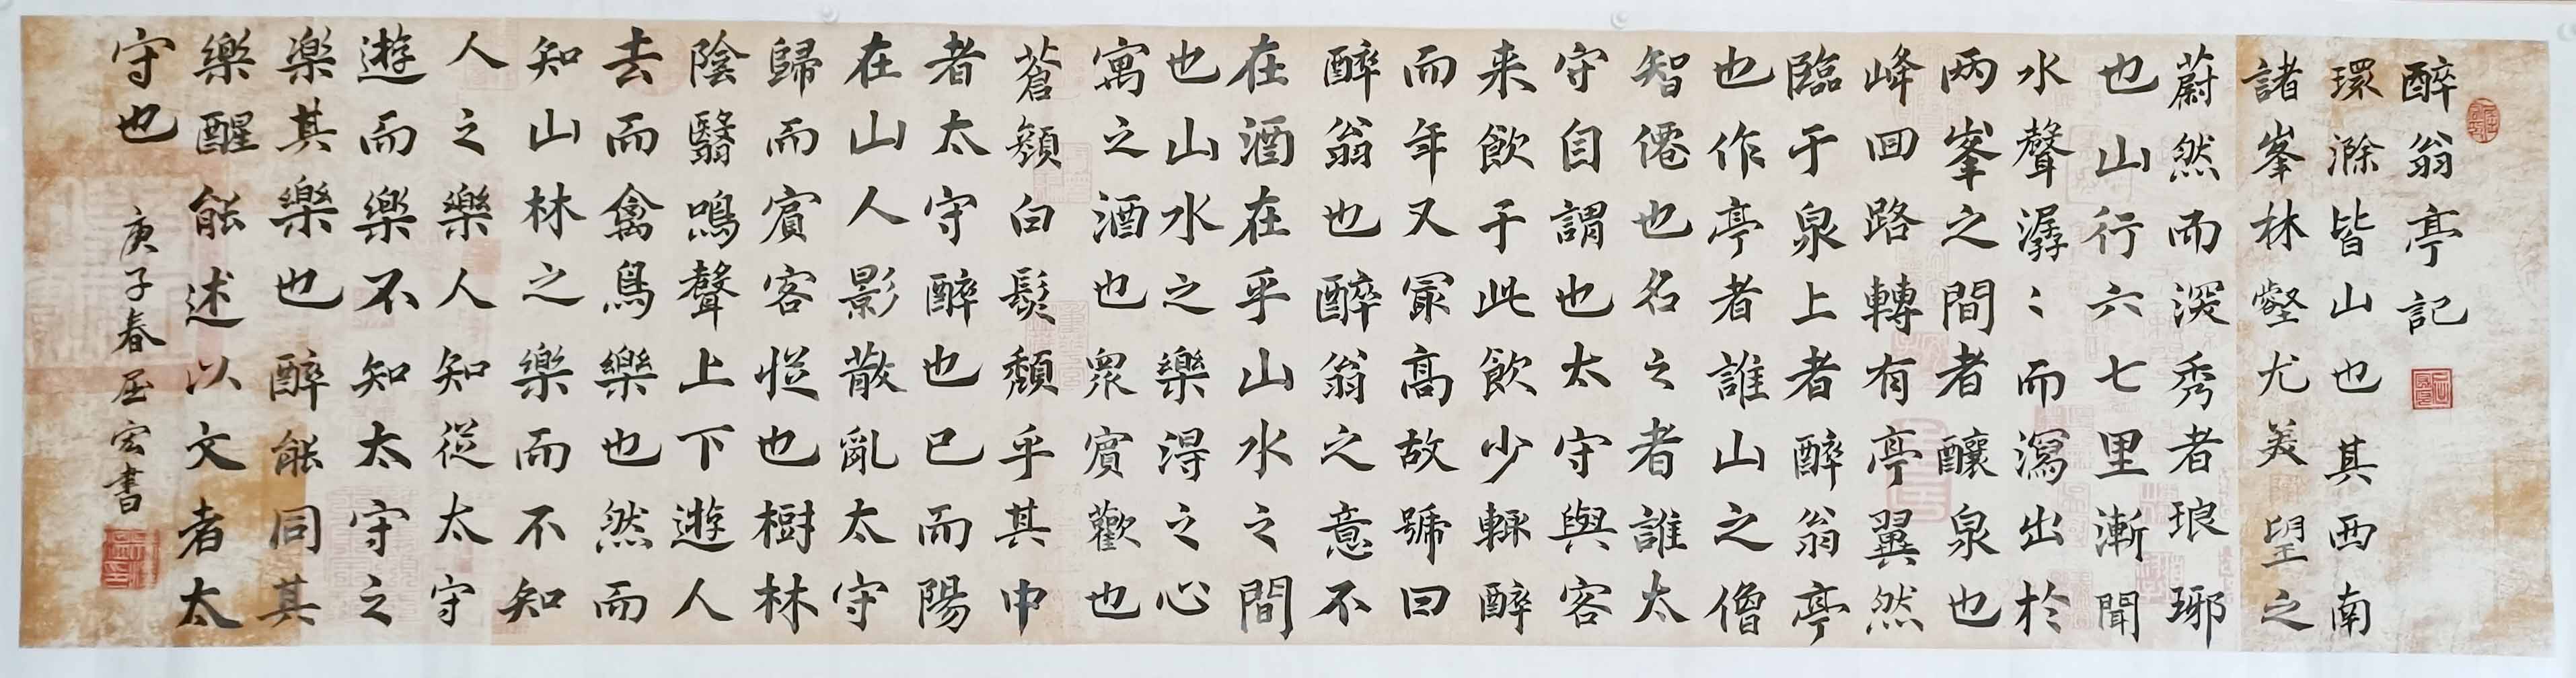 醉翁亭記
環滁皆山也其西南
諸峯林壑尤美望之
蔚然而深秀者琅琊
也山行六七里漸聞
水聲潺〻而瀉出於
两峯之間者釀泉也
峰回路轉有亭翼然
臨于泉上者醉翁亭
也作亭者誰山之僧
智僊也名之者誰太
守自謂也太守與客
来飲于此飲少輒醉
而年又冣高故號曰
醉翁也醉翁之意不
在酒在乎山水之間
也山水之樂得之心
寓之酒也衆賓歡也
蒼顏白髮頹乎其中
者太守醉也已而陽
在山人影散亂太守
歸而賓客從也樹林
陰翳鳴聲上下遊人
去而禽鳥樂也然而
知山林之樂而不知
人之樂人知從太守
遊而樂不知太守之
樂其樂也醉能同其
樂醒能述以文者太
守也 庚子春屈宏書